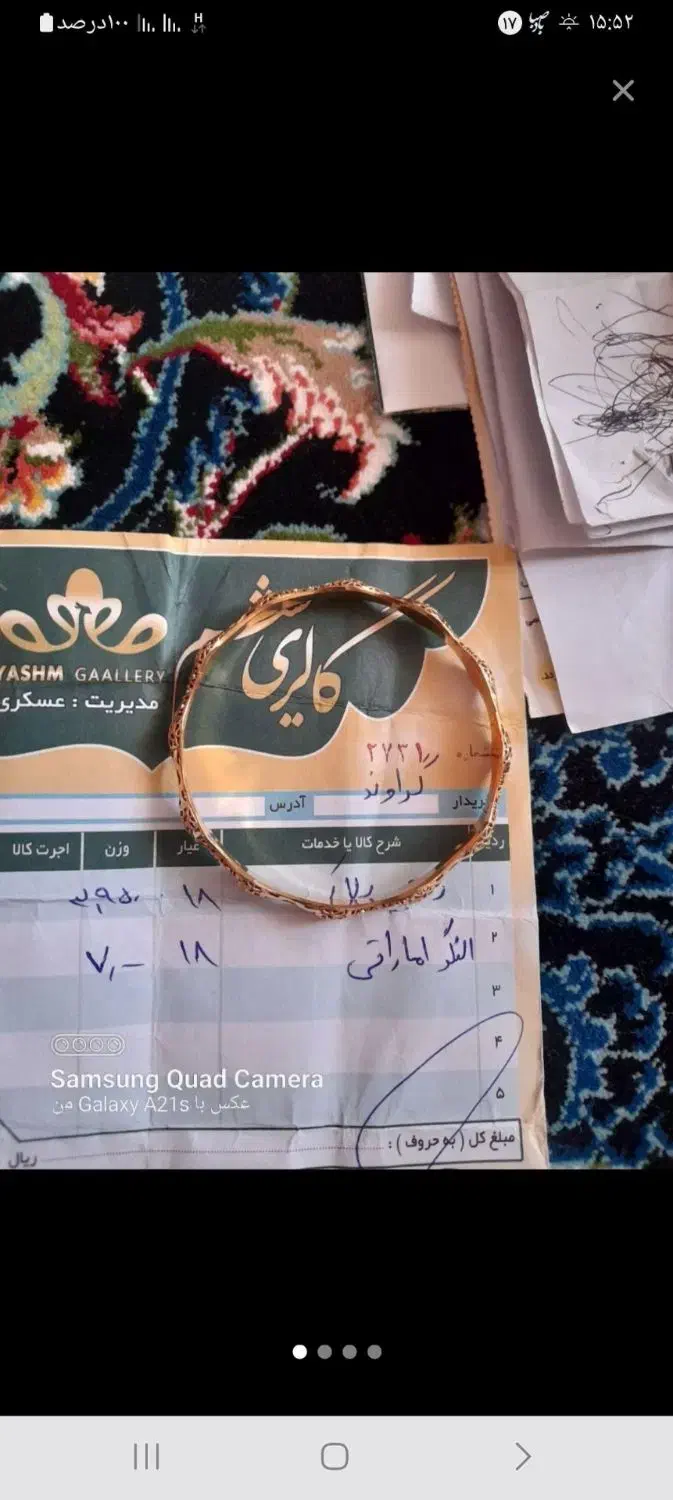 ۱۵:۵۲ ۱۷ ۱۰۰درصد H
گالری یشم
YASHM GAALLERY
مدیریت : عسکری
شماره
خریدار آدرس
ردیف شرح کالا یا خدمات عیار وزن اجرت کالا
۱ ۱۸
۲ النگو اماراتی ۱۸ ۷,-
۳
۴
۵
Samsung Quad Camera
عکس با Galaxy A21s من
مبلغ کل ( به حروف ) : ریال